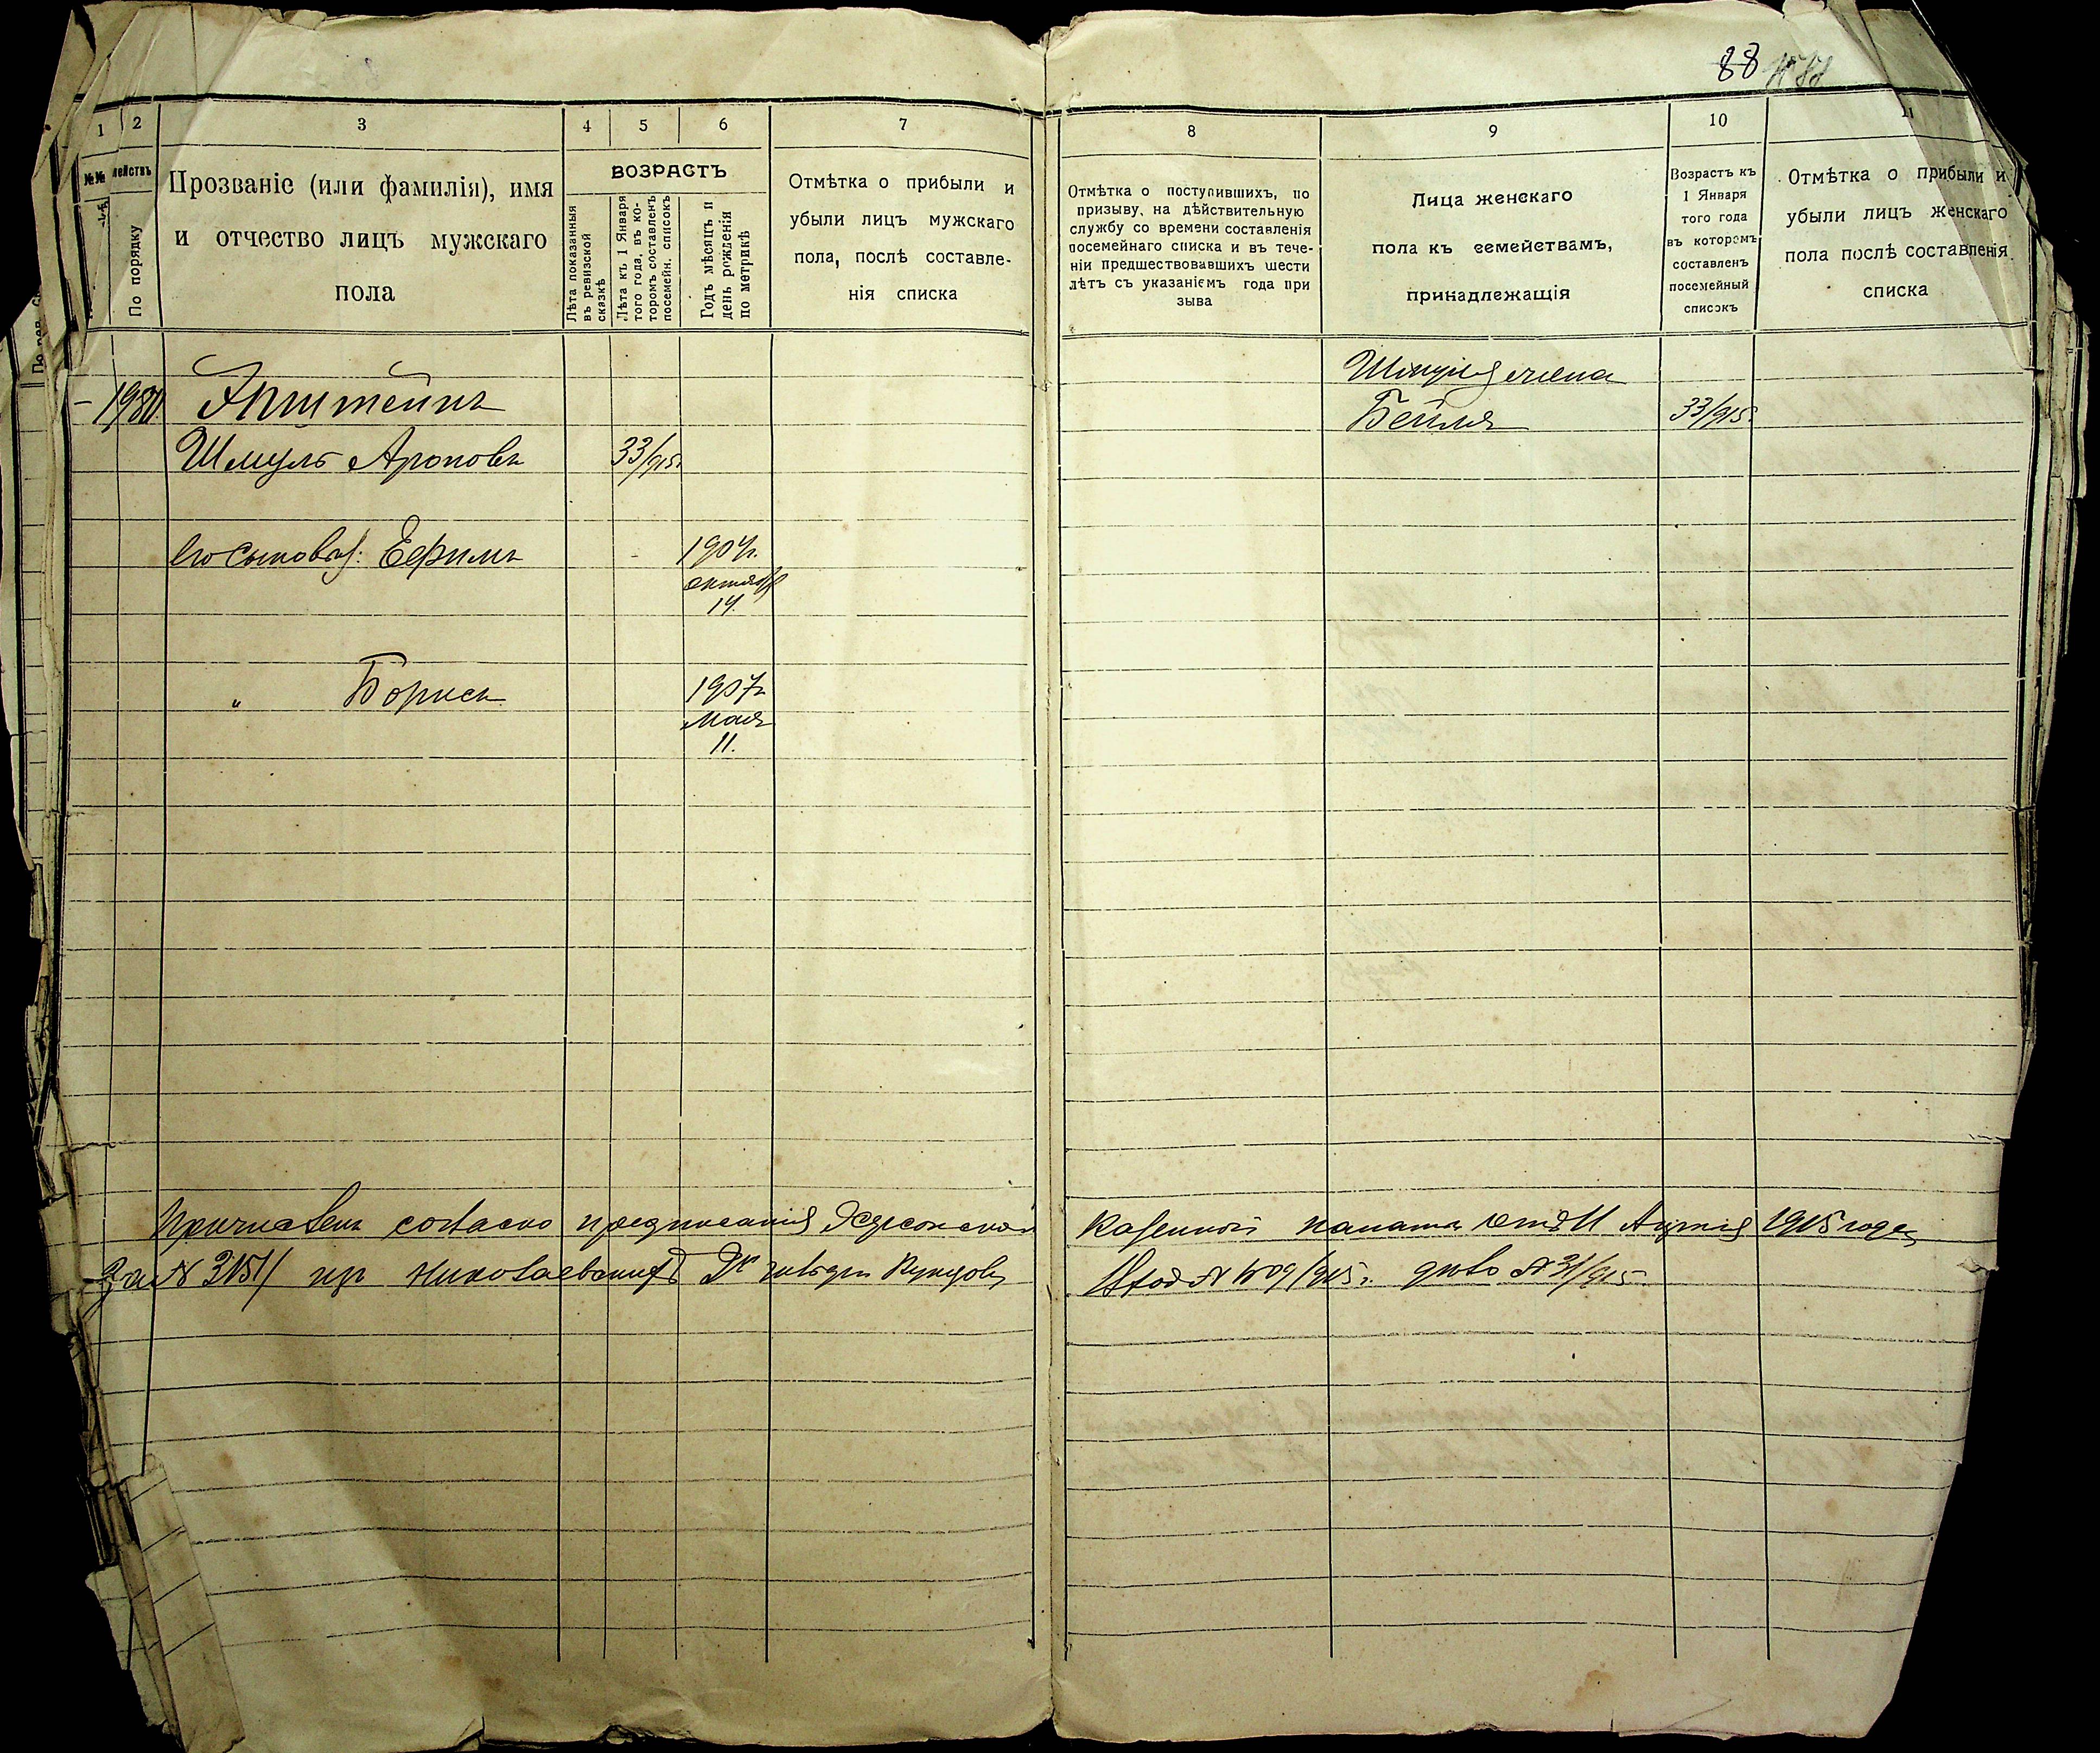 88
1 2 3 4 5 6 7 8 9 10 11
№№ мействъ
По порядку
Прозваніе (или фамилія), имя
и отчество лицъ мужскаго
пола
ВОЗРАСТЪ
Лѣта показанныя
въ ревизской
сказкѣ
Лѣта къ 1 Января
того года, въ ко-
торомъ составленъ
посемейн. списокъ
Годъ мѣсяцъ и
день рожденія
по метрикѣ
Отмѣтка о прибыли и
убыли лицъ мужскаго
пола, послѣ составле-
нія списка
Отмѣтка о поступившихъ, по
призыву, на дѣйствительную
службу со времени составленія
посемейнаго списка и въ тече-
ніи предшествовавшихъ шести
лѣтъ съ указаніемъ года при
зыва
Лица женскаго
пола къ семействамъ,
принадлежащія
Возрастъ къ
1 Января
того года
въ которомъ
составленъ
посемейный
списокъ
Отмѣтка о прибыли и
убыли лицъ женскаго
пола послѣ составленія
списка
1980. Эпштейнъ
Шмуль Ароновъ 33/915г.
Его сыновья: Ефимъ 1904г.
октября
14.
" Борисъ 1907г.
Мая
11.
Шмуля жена
Бейля 33/915г.
Причисленъ согласно предписанія Херсонской Казенной палаты отъ 11 Апрѣля 1915 года
За № 3151/ изъ Николаевскихъ 2й гильдіи Купцовъ Вход № 1509/915г. дѣло № 31/915